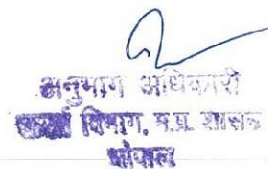 अनुभाग अधिकारी
विभाग, म.प्र. शासन
भोपाल